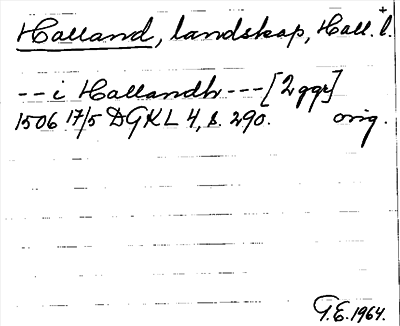 Halland, landskap, Hall. l.
-- i Hallandh --- [2 ggr]
1506 17/5 DGKL 4, s. 290. orig.
G.E. 1964.